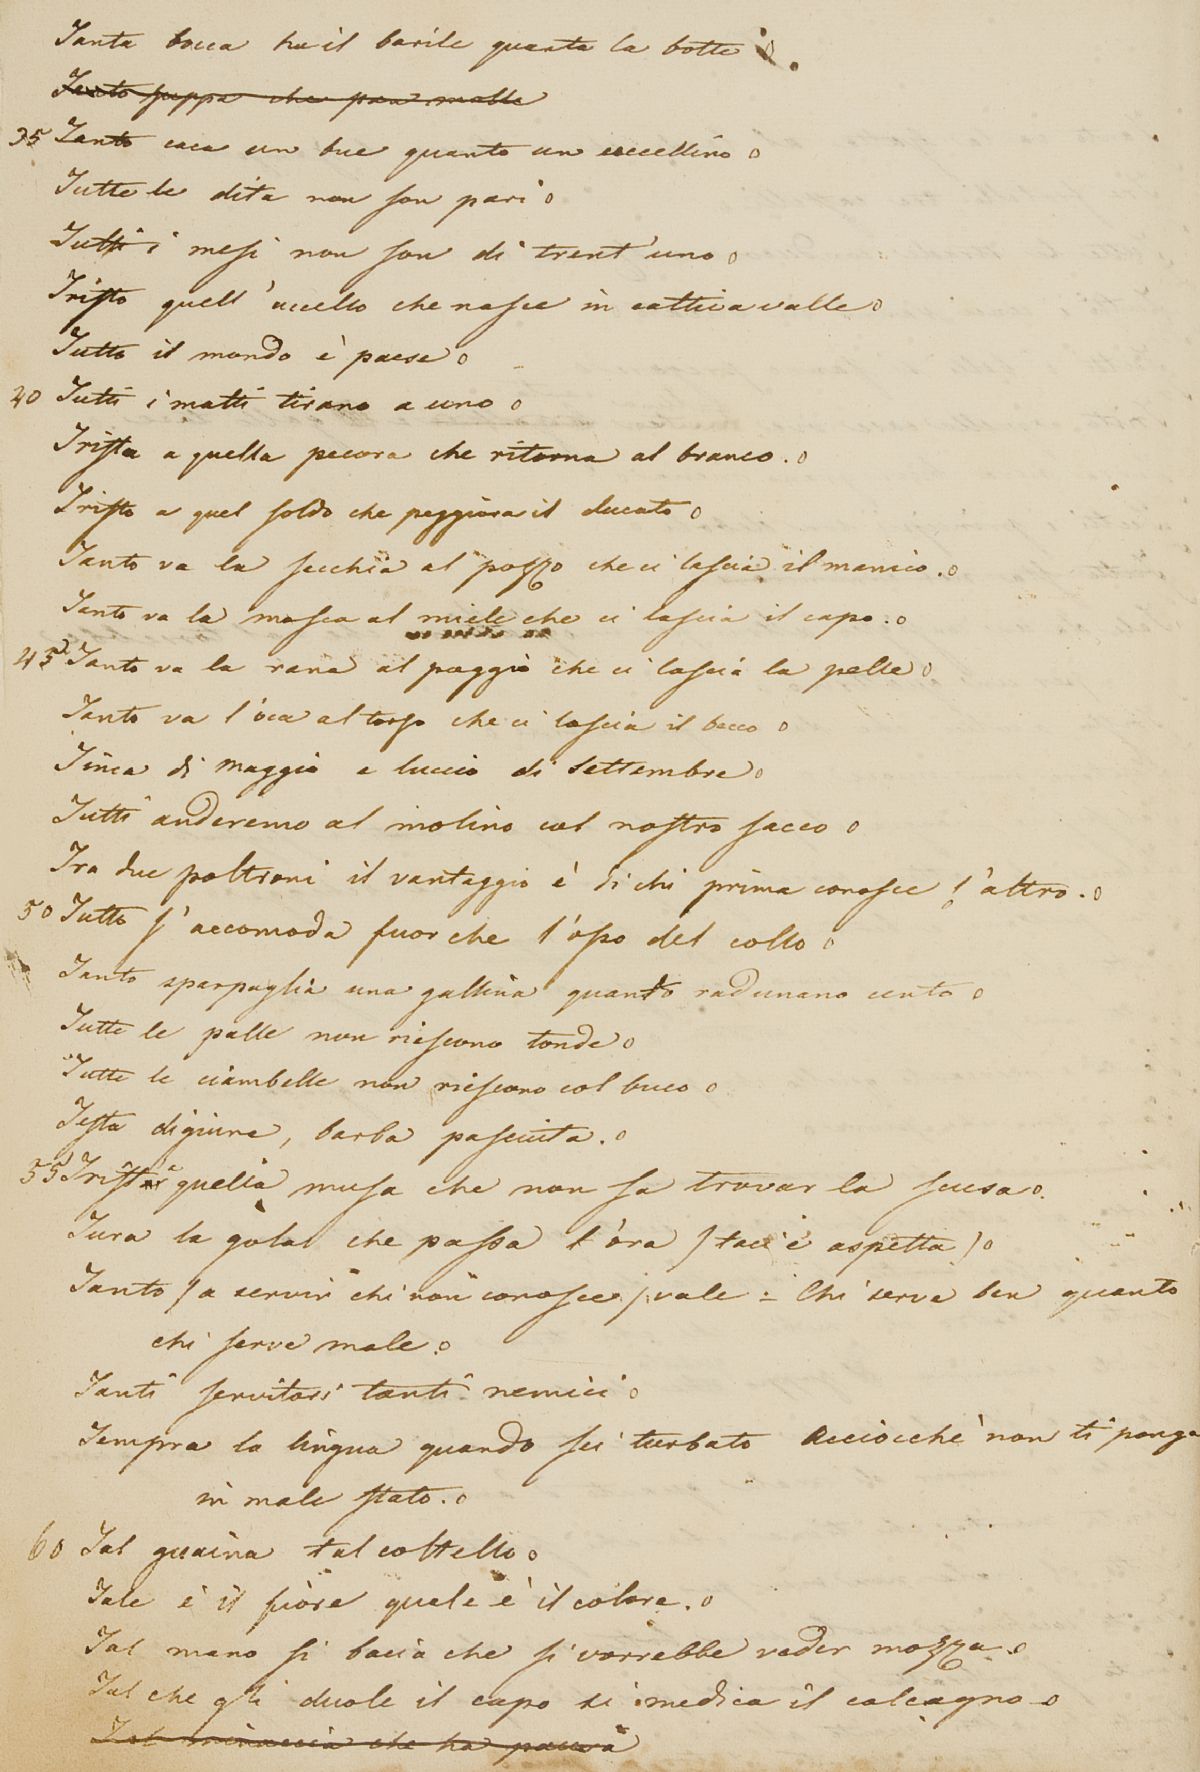 Tanta bocca ha il barile quanta la botte o.
Tanto suppa che pan molle
35 Tanto caca un bue quanto un uccellino o
Tutte le dita non son pari o
Tutti i mesi non son di trent'uno o
Tristo quell'uccello che nasce in cattiva valle o
Tutto il mondo è paese o
40 Tutti i matti tirano a uno o
Trista a quella pecora che ritorna al branco. o
Tristo a quel soldo che peggiora il ducato o
Tanto va la secchia al pozzo che ci lascia il manico. o
Tanto va la mosca al miele che ci lascia il capo. o
45 Tanto va la rana al poggio che ci lascia la pelle o
Tanto va l'oca al torso che ci lascia il becco o
Tinca di Maggio e luccio di Settembre o
Tutti anderemo al molino col nostro sacco o
Tra due poltroni il vantaggio è di chi prima conosce l'altro. o
50 Tutto s'accomoda fuor che l'osso del collo o
Tanto sparpaglia una gallina quanto radunano cento o
Tutte le palle non riescono tonde o
Tutte le ciambelle non riescono col buco o
Testa digiuna, barba pasciuta. o
55 Trist quella musa che non sa trovar la scusa o.
Tura la gola che passa l'ora (taci e aspetta) o
Tanto (a servir chi non conosce) vale = Chi serve ben quanto
chi serve male. o
Tanti servitori tanti nemici o
Tempra la lingua quando sei turbato Acciocchè non ti ponga
in male stato. o
60 Tal guaina tal coltello o
Tale è il fiore quale è il colore. o
Tal mano si bacia che si vorrebbe veder mozza o
Tal che gli duole il capo si medica il calcagno o
Tal minaccia che ha paura